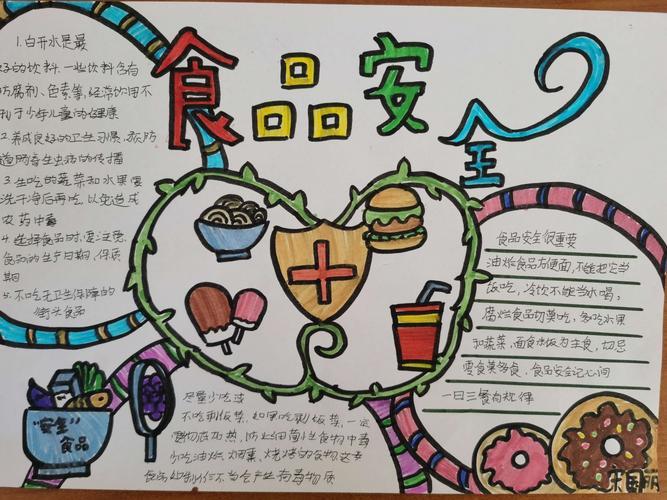 食品安全
1.白开水是最
好的饮料,一些饮料含有
防腐剂、色素等,经常饮用不
利于少年儿童的健康
2.养成良好的卫生习惯,预防
肠道寄生虫病的传播
3.生吃的蔬菜和水果要
洗干净后再吃,以免造成
农药中毒
4.选择食品时,要注意
食品的生产日期、保质
期
5.不吃无卫生保障的
街头食品
食品安全很重要
油炸食品方便面,不能把它当
饭吃,冷饮不能当水喝;
腐烂食品切莫吃,多吃水果
和蔬菜,面食米饭为主食,切忌
零食莫多食,食品安全记心间
一日三餐有规律
"安全"
食品
尽量少吃
不吃剩饭菜,如果吃剩饭菜,一定
要彻底加热,防止细菌性食物中毒
少吃油炸、烟熏、烧烤的食物,这类
食品如制作不当会产生有毒物质